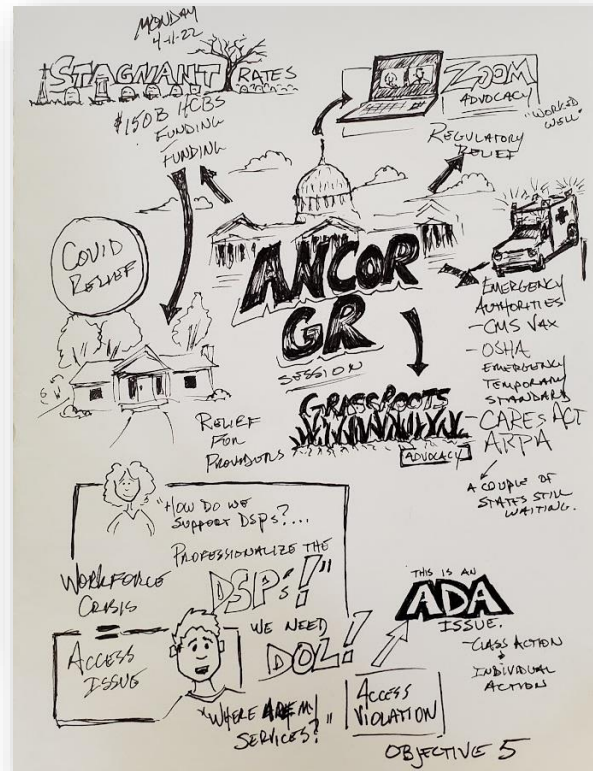 MONDAY
4-11-22
STAGNANT RATES
$150B HCBS
FUNDING
FUNDING
ZOOM
ADVOCACY
"WORKED
WELL"
REGULATORY
RELIEF
COVID
RELIEF
ANCOR
GR
SESSION
EMERGENCY
AUTHORITIES
-CMS VAX
-OSHA
EMERGENCY
TEMPORARY
STANDARD
-CARES ACT
ARPA
A COUPLE OF
STATES STILL
WAITING.
GRASSROOTS
ADVOCACY
RELIEF
FOR
PROVIDERS
"HOW DO WE
SUPPORT DSPs?...
PROFESSIONALIZE THE
DSP's!"
WORKFORCE
CRISIS
=
ACCESS
ISSUE
WE NEED
DOL!
"WHERE ARE MY
SERVICES?"
ACCESS
VIOLATION
THIS IS AN
ADA
ISSUE.
-CLASS ACTION
INDIVIDUAL
ACTION
OBJECTIVE 5